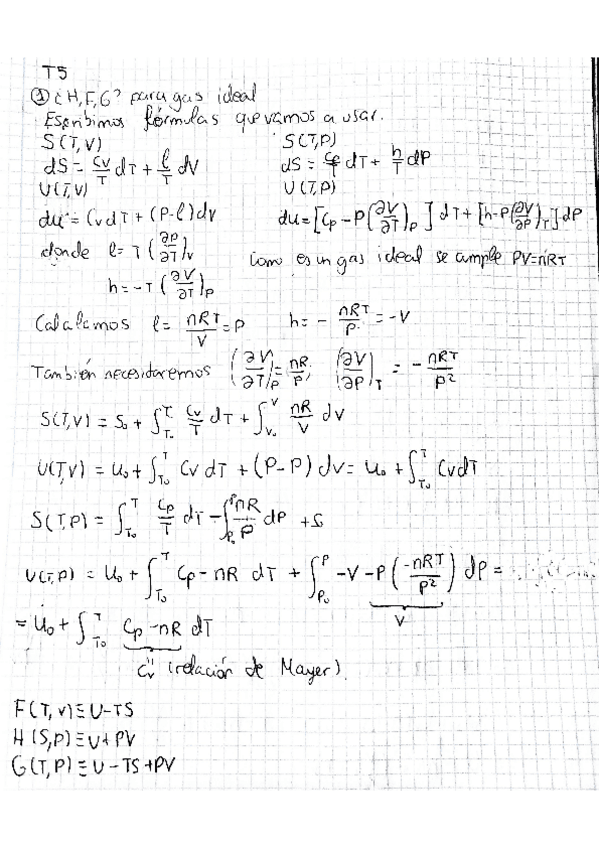 T5
① ¿H,F,G? para gas ideal
Escribimos fórmulas que vamos a usar.
S(T,V) S(T,P)
dS = Cv/T dT + l/T dV dS = Cp/T dT + h/T dP
U(T,V) U(T,P)
du = Cv dT + (P-l)dv du = [Cp - P(∂V/∂T)_P] dT + [h-P(∂V/∂P)_T] dP
donde l = T(∂P/∂T)_V Como es un gas ideal se cumple PV=nRT
h = -T(∂V/∂T)_P
Calculamos l = nRT/V = P h = - nRT/P = -V
También necesitaremos (∂V/∂T)_P = nR/P; (∂V/∂P)_T = - nRT/P²
S(T,V) = S₀ + ∫_T₀^T Cv/T dT + ∫_V₀^V nR/V dV
U(T,V) = U₀ + ∫_T₀^T Cv dT + (P-P) dV = U₀ + ∫_T₀^T Cv dT
S(T,P) = ∫_T₀^T Cp/T dT - ∫_P₀^P nR/P dP + S₀
U(T,P) = U₀ + ∫_T₀^T Cp - nR dT + ∫_P₀^P -V - P(-nRT/P²) dP =
V
= U₀ + ∫_T₀^T Cp - nR dT
Cv (relación de Mayer).
F(T,V) ≡ U-TS
H(S,P) ≡ U+PV
G(T,P) ≡ U-TS+PV